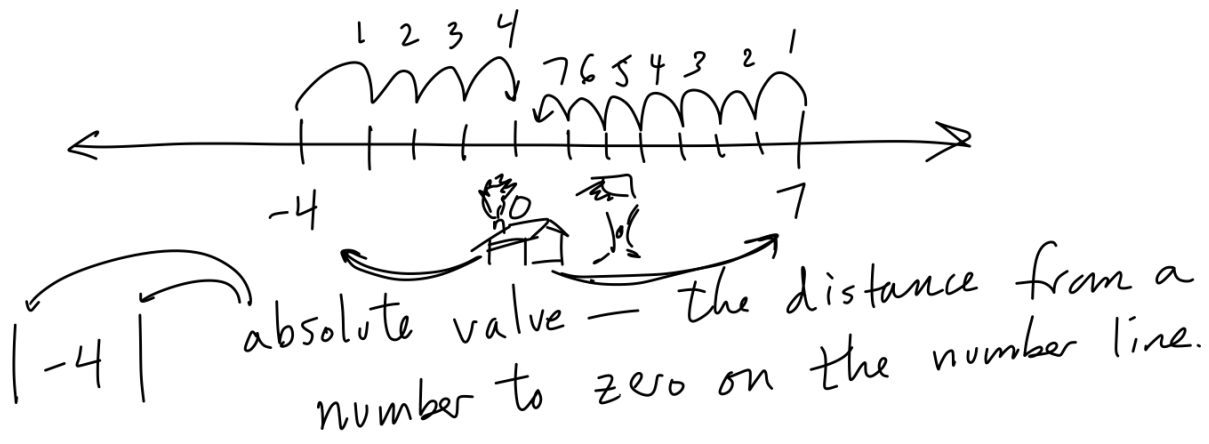 1 2 3 4 7 6 5 4 3 2 1
-4 0 7
|-4| absolute value — the distance from a
number to zero on the number line.